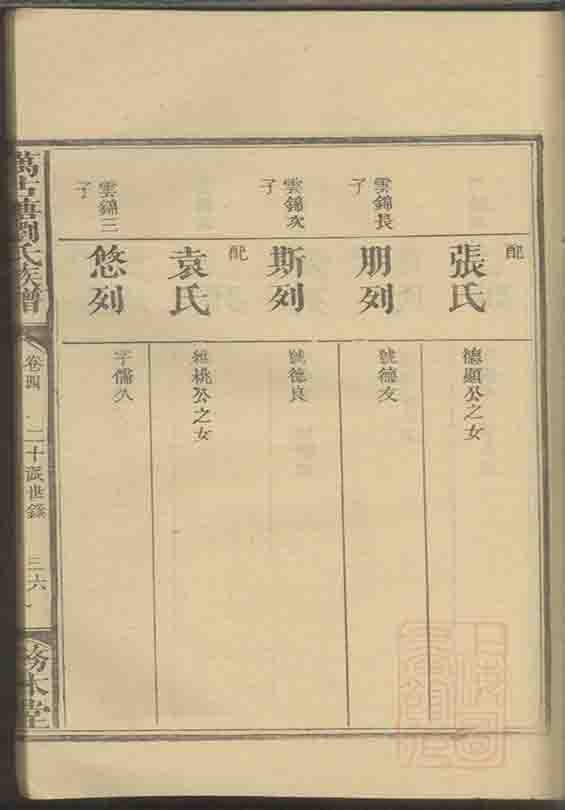 配
張氏
德顯公之女
雲錦長子
朋列
號德友
雲錦次子
斯列
號德良
配
袁氏
桃公之女
雲錦三子
悠列
字儒久
劉氏族譜
卷四
二十派世錄
三六
務本堂